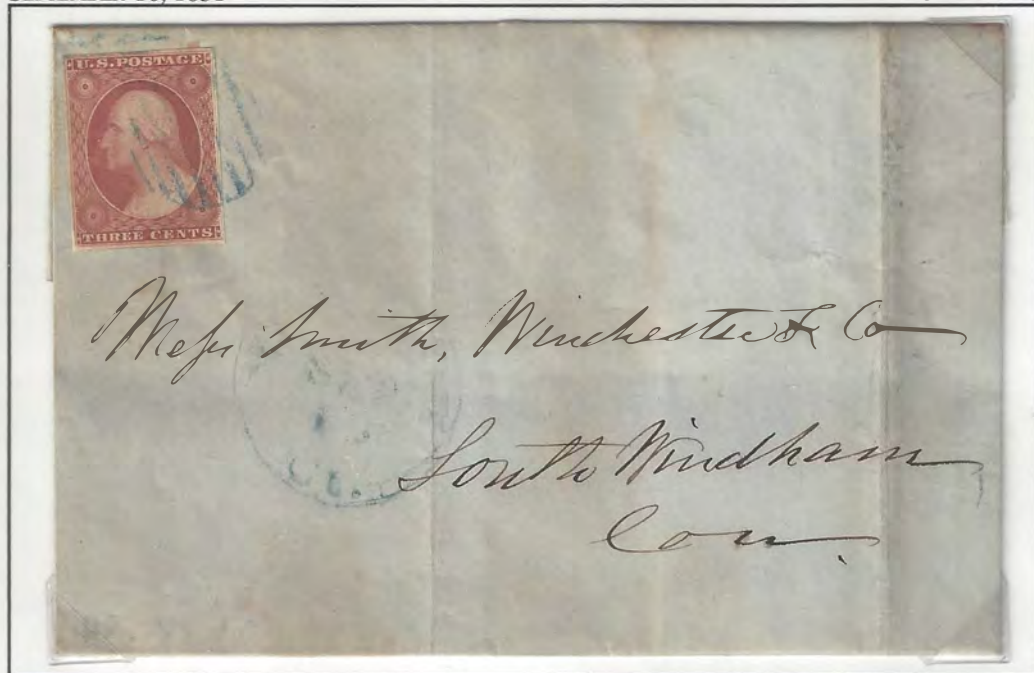 U.S. POSTAGE
THREE CENTS
Messrs Smith, Winchester & Co
South Windham
Con.